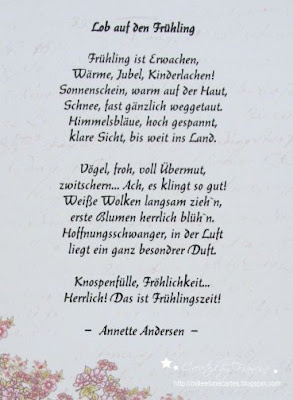 Lob auf den Frühling
Frühling ist Erwachen,
Wärme, Jubel, Kinderlachen!
Sonnenschein, warm auf der Haut,
Schnee, fast gänzlich weggetaut.
Himmelsbläue, hoch gespannt,
klare Sicht, bis weit ins Land.
Vögel, froh, voll Übermut,
zwitschern... Ach, es klingt so gut!
Weiße Wolken langsam zieh`n,
erste Blumen herrlich blüh`n.
Hoffnungsschwanger, in der Luft
liegt ein ganz besondrer Duft.
Knospenfülle, Fröhlichkeit...
Herrlich! Das ist Frühlingszeit!
– Annette Andersen –